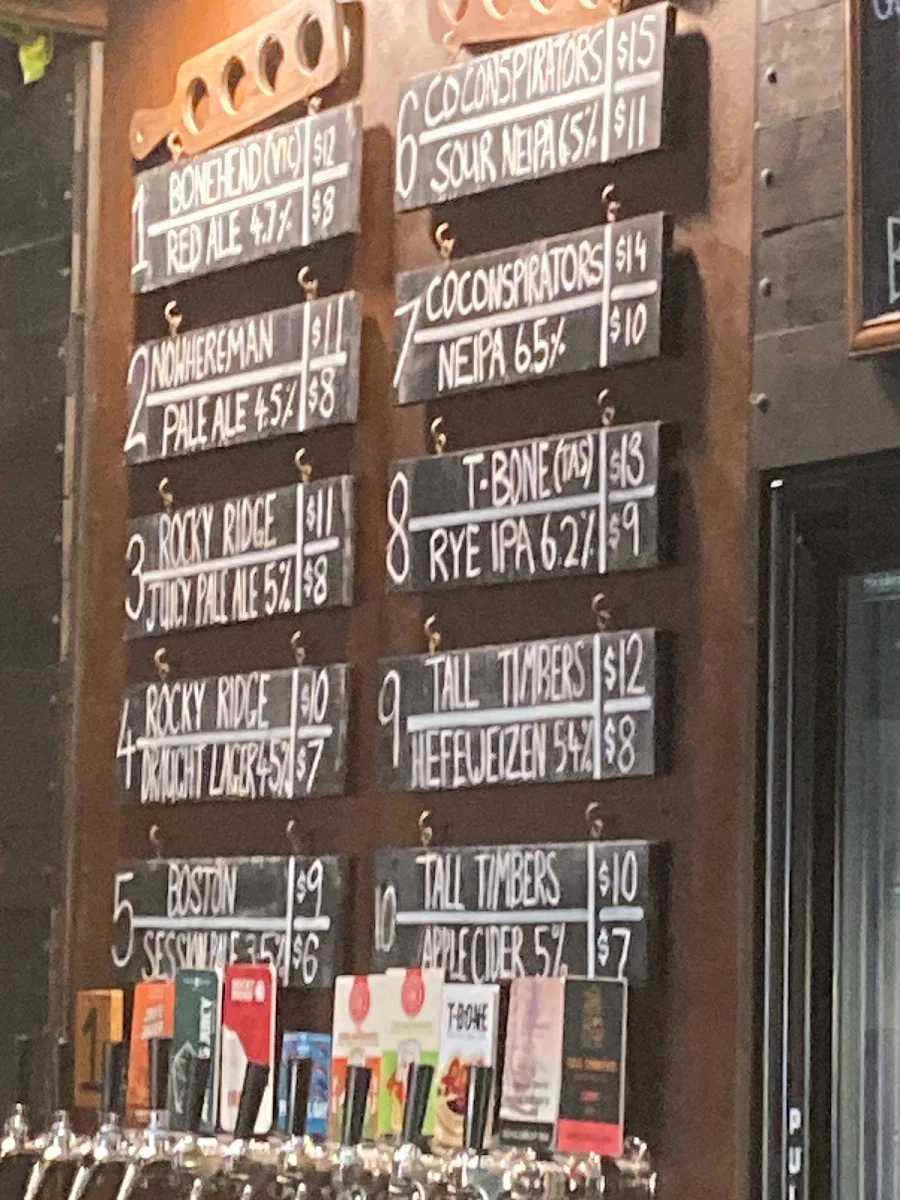 1 BONEHEAD (VIC) $12
RED ALE 4.7% $8
2 NOWHEREMAN $11
PALE ALE 4.5% $8
3 ROCKY RIDGE $11
JUICY PALE ALE 5% $8
4 ROCKY RIDGE $10
DRAUGHT LAGER 4.5% $7
5 BOSTON $9
SESSION ALE 3.5% $6
6 COCONSPIRATORS $15
SOUR NEIPA 6.5% $11
7 COCONSPIRATORS $14
NEIPA 6.5% $10
8 T-BONE (TAS) $13
RYE IPA 6.2% $9
9 TALL TIMBERS $12
HEFEWEIZEN 5.4% $8
10 TALL TIMBERS $10
APPLE CIDER 5% $7
1
JUICY
T-BONE
P
U